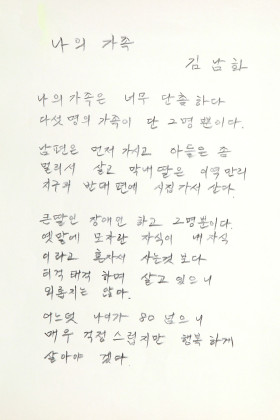 나의 가족
김남화
나의 가족은 너무 단촐하다
다섯 명의 가족이 단 2명 뿐이다.
남편은 먼저 가시고 아들은 좀
멀리서 살고 막내딸은 이역만리
지구의 반대편에 시집가서 산다.
큰딸인 장애인 하고 2명뿐이다.
옛말에 모자란 자식이 내 자식
이라고 혼자서 사는것 보다
티격태격 하며 살고 있으니
외롭지는 않아.
어느덧 나이가 80 넘으니
매우 걱정스럽지만 행복하게
살아야 겠다